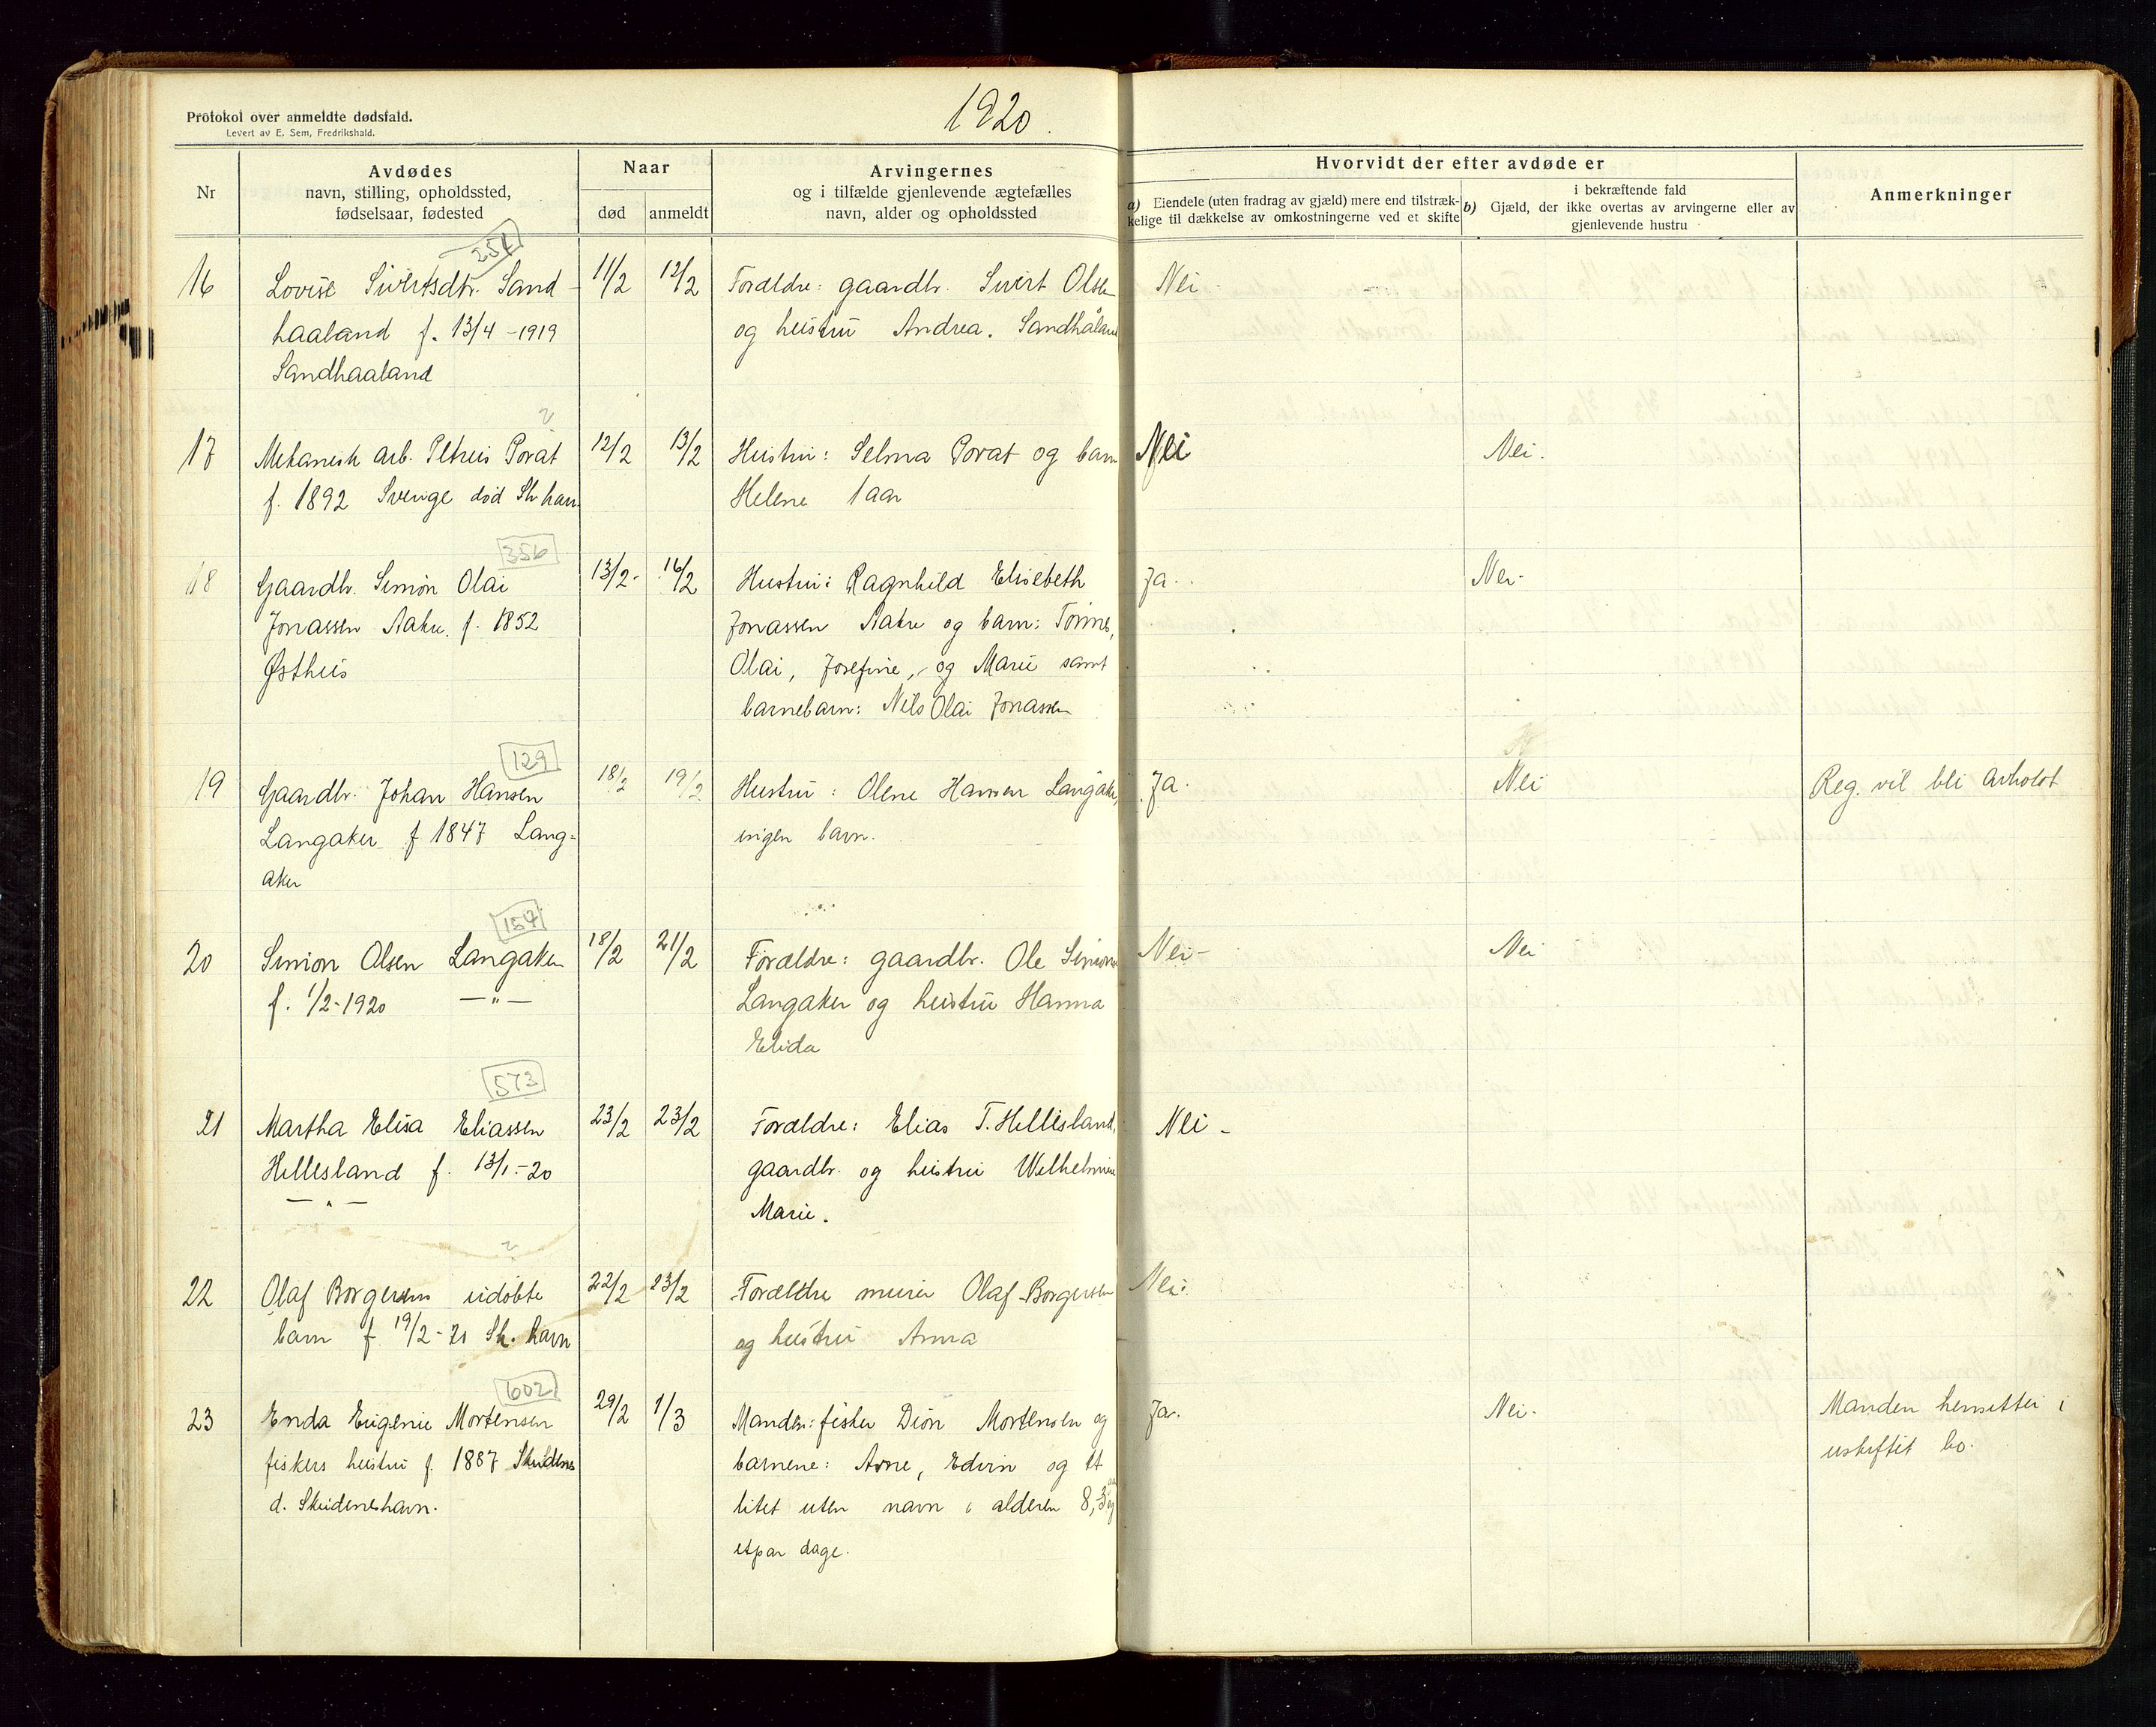 Protokol over anmeldte dødsfald.
Levert av E. Sem, Fredrikshald.
1920.
Nr
Avdødes
navn, stilling, opholdssted,
fødselsaar, fødested
Naar
død
anmeldt
Arvingernes
og i tilfælde gjenlevende ægtefælles
navn, alder og opholdssted
Hvorvidt der efter avdøde er
a) Eiendele (uten fradrag av gjæld) mere end tilstræk-
kelige til dækkelse av omkostningerne ved et skifte
i bekræftende fald
b) Gjæld, der ikke overtas av arvingerne eller av
gjenlevende hustru
Anmerkninger
254
16 Lovise Sivertsdtr. Sand- 11/2 12/2 Foreldre: gaardbr. Sivert Olsen Nei
haaland f. 13/4-1919 og hustru Andrea. Sandhåland
Sandhaaland
17 Mekanisk arb. Petrus Porat 12/2 13/2 Hustru: Selma Porat og barn Nei Nei.
f. 1892 Sverige død Sk.havn Helene 1 aar
356
18 Gaardbr. Simon Olai 13/2- 16/2 Hustru: Ragnhild Elisebeth Ja. Nei.
Jonassen Aakre. f. 1852 Jonassen Aakre og barn: Tønnes,
Østhus Olai, Josefine, og Marie samt
barnebarn: Nils Olai Jonassen
129
19 Gaardbr. Johan Hansen 18/2 19/2 Hustru: Olene Hansen Langåker, Ja. Nei Reg. vil bli avholdt
Langaker f 1847 Lang- ingen barn.
aker
157
20 Simon Olsen Langaker 18/2 21/2 Forældre: gaardbr. Ole Simonsen Nei- Nei
f. 1/2-1920 —"— Langaker og hustru Hanna
Elida
573
21 Martha Elisa Eliassen 23/2 23/2 Forældre: Elias T. Hellesland, Nei-
Hellesland f. 13/1-20 gaardbr. og hustru Wilhelmine
—"— Marie.
22 Olaf Borgersens udøbte 22/2 23/2 Forældre murer Olaf Borgersen Nei.
barn f. 19/2-20 Sk.havn og hustru Anna
602
23 Enda Eugenie Mortensen 29/2 1/3 Manden: fisker Dion Mortensen og Ja. Nei. Manden hensitter i
fiskers hustru f. 1887 Skudenes barnene: Arne, Edvin og et uskiftet bo.
d. Skudeneshavn. litet uten navn i alderen 8, 3 og
etpar dage.